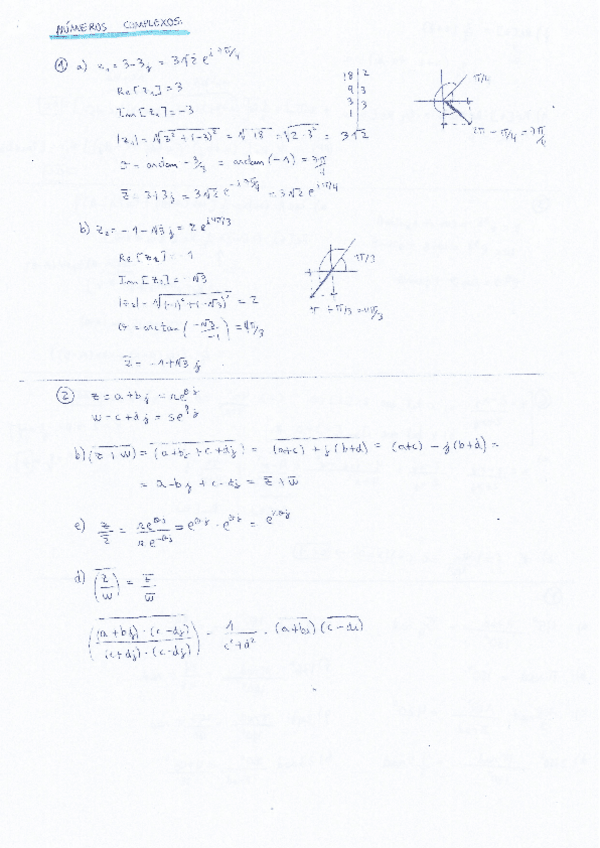 NÚMEROS COMPLEXOS:
① a) z₁ = 3-3j = 3√2 e^{j 7π/4}
Re[z₁] = 3
Im[z₁] = -3
|z₁| = √(3²+(-3)²) = √18 = √(2·3²) = 3√2
θ = arctan -3/3 = arctan(-1) = 7π/4
z̄ = 3+3j = 3√2 e^{-j 7π/4} = 3√2 e^{jπ/4}
18 | 2
9 | 3
3 | 3
1 |
π/4
2π - π/4 = 7π/4
b) z₂ = -1-√3 j = 2 e^{j4π/3}
Re[z₂] = -1
Im[z₂] = -√3
|z₂| = √((-1)²+(-√3)²) = 2
θ = arctan(-√3/-1) = 4π/3
z̄ = -1+√3 j
π/3
π + π/3 = 4π/3
② z = a+bj = re^{θj}
w = c+dj = se^{φj}
b) (z+w)‾ = (a+bj+c+dj)‾ = (a+c)+j(b+d)‾ = (a+c) - j(b+d) =
= a-bj + c-dj = z̄+w̄
c) z/z̄ = re^{θj}/re^{-θj} = e^{θj} · e^{θj} = e^{2θj}
d) (z/w)‾ = z̄/w̄
((a+bj)·(c-dj)/(c+dj)·(c-dj))‾ = 1/(c²+d²) · (a+bj)‾ (c-dj)‾